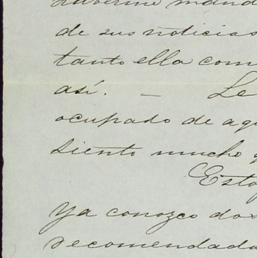 de sus noticias
tanto ella com
así. — Le
ocupado de aq
siento mucho q
Esto
Ya conozco do
recomendada